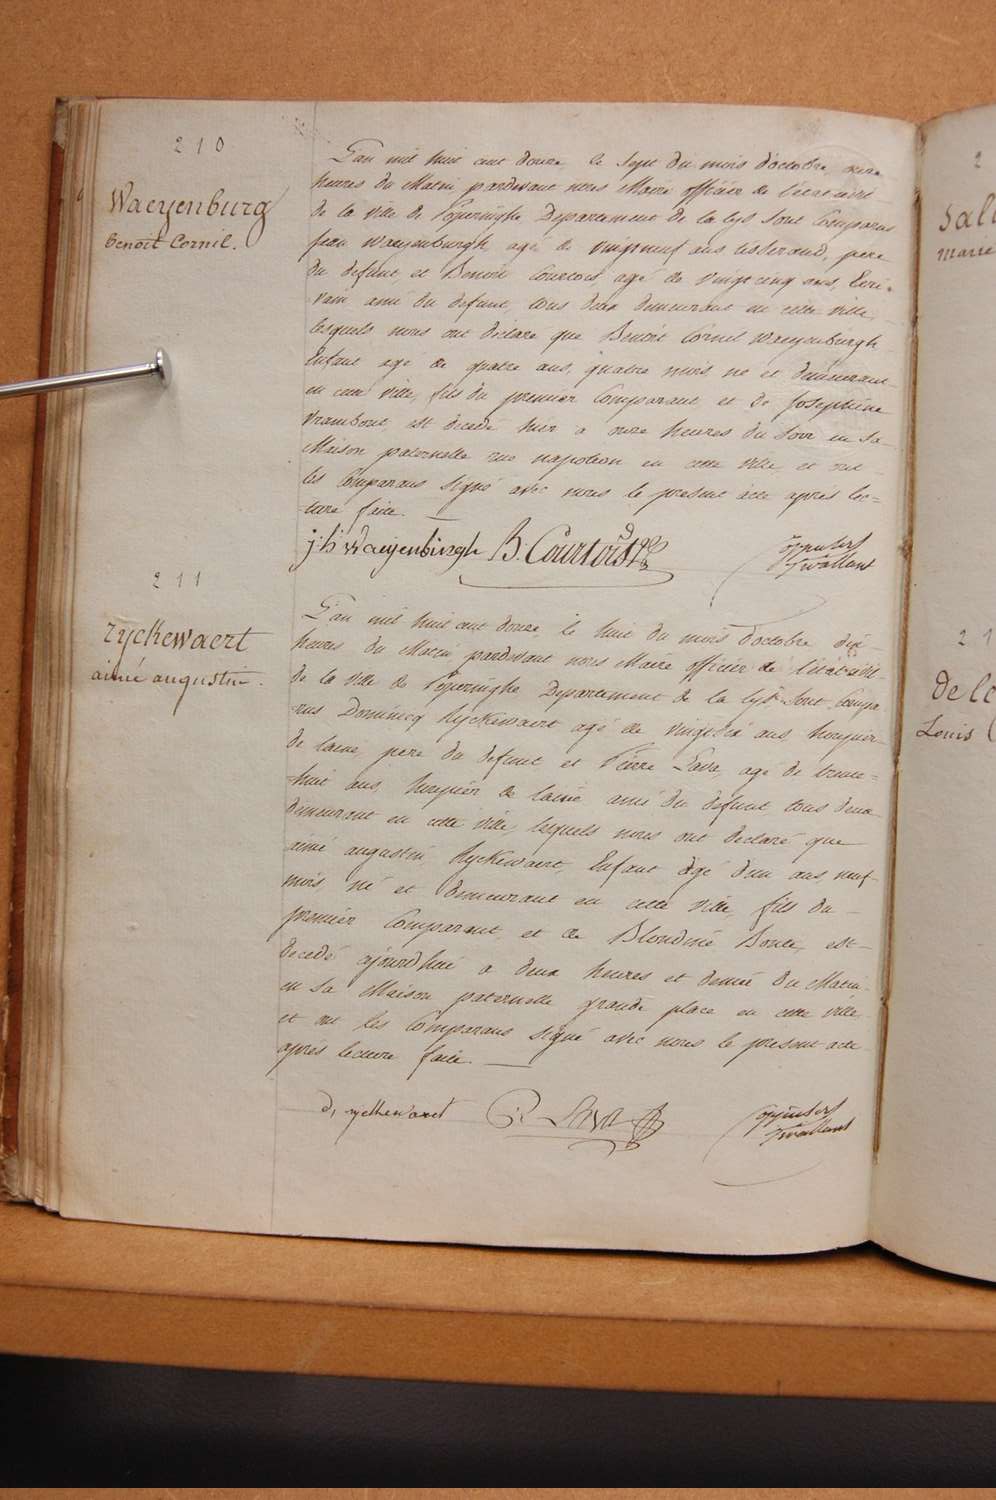 210
Waeyenburg
Benoit Cornil.
L'an mil huit cent douze, le sept du mois d'octobre, onze
heures du Matin pardevant nous Maire officier de l'état civil
de la ville de Poperinghe Departement de la Lys Sont Comparus
jean Waeyenburgh agé de vingtneuf ans tisserand, pere
du defunt, et Benoit Courtois agé de vingtcinq ans, Ecri-
vain ami du defunt, tous deux demeurant en cette ville,
lesquels nous ont declaré que Benoit Cornil Waeyenburgh
Enfant agé de quatre ans, quatre mois né et demeurant
en cette ville, fils du premier Comparant et de Josephine
Vrambout est decedé hier a onze heures du Soir en Sa
Maison paternelle rue napoleon en cette ville et ont
les Comparans Signé avec nous le present acte après lec-
ture faite.
j:b: Waeyenburgh B: Courtois
211
ryckewaert
aimé augustin.
L'an mil huit cent douze, le huit du mois d'octobre dix
heures du Matin pardevant nous Maire officier de l'état civil
de la ville de Poperinghe Departement de la Lys Sont Compa-
rus Dominicq Ryckewaert agé de vingtsix ans houpier
de laine, pere du defunt et Pierre Sava, agé de trente-
huit ans, houpier de laine ami du defunt tous deux
demeurant en cette ville, lesquels nous ont declaré que
aimé augustin Ryckewaert, Enfant agé d'un ans, neuf
mois, né et demeurant en cette ville, fils du
premier Comparant, et de Blondine Boute, est
decedé ajourd'hui a deux heures et demie du Matin
en Sa Maison paternelle grande place en cette ville,
et ont les Comparans Signé avec nous le present acte
après lecture faite.
d, ryckewaert P. Sava
Sal
marie
2 1
De le
Louis